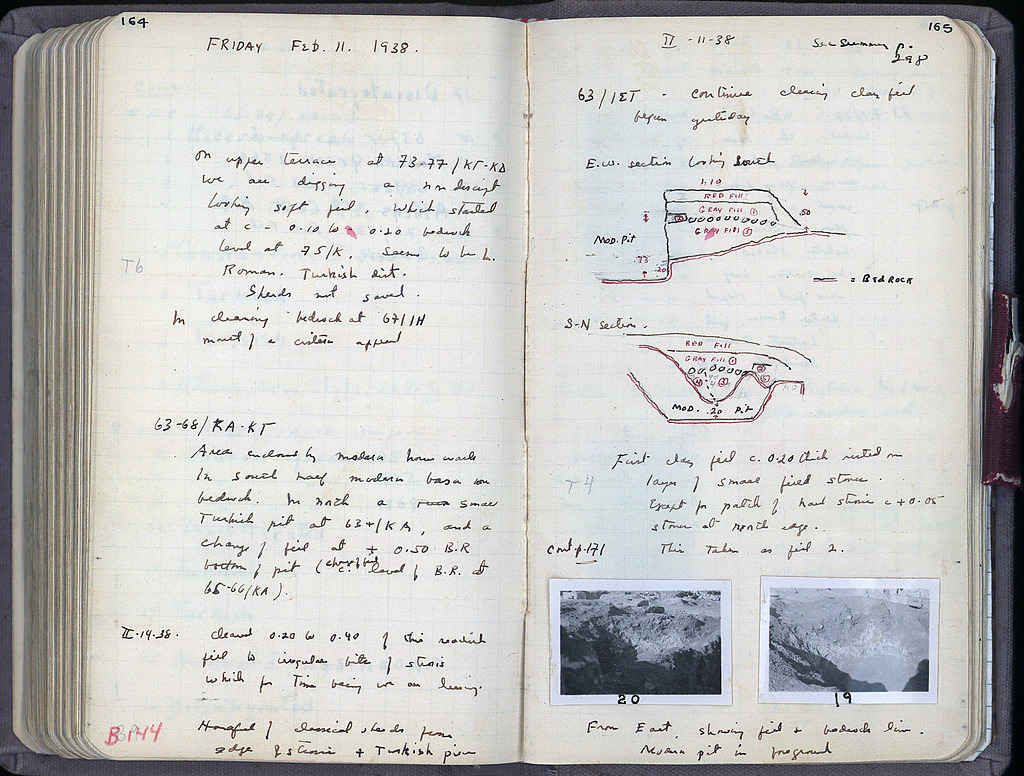 164
FRIDAY FEB. 11. 1938.
On upper terrace at 73-77/KT-KΔ
we are digging a non descript
looking soft fill, which started
at c - 0.10 to 0.20 bedrock
level at 75/K. Seems to be L.
T6
Roman. Turkish dirt.
Sherds not saved.
In clearing bedrock at 67/IH
mouth of a cistern appeared
63-68/KA-KT
Area enclosed by modern house walls
In south half modern base on
bedrock. In north a small
Turkish pit at 63+/KA, and a
change of fill at + 0.50 B.R
bottom of pit (change of fill c. level of B.R. at
65-66/KA).
II-14-38. cleared 0.20 to 0.40 of this reddish
fill to irregular bits of stereo
which for time being we are leaving.
B 44
Handful of classical sherds from
edge of stereo + Turkish piece
165
II-11-38
See Summary p. 298
63/IΣT - continue clearing clay fill
begun yesterday
E.W. section looking South
1.10
RED Fill
GRAY Fill ①
.50
GRAY Fill
MOD. Pit
.73
.20
= BEDROCK
S-N section.
RED Fill
GRAY Fill ①
MOD. .20 Pit
First clay fill c. 0.20 thick rested on
T4
layer of small field stones.
Except for patch of hard stereo c + 0.05
stones at north edge.
Cont p. 171
This taken as fill 2.
20
19
From East, showing fill + bedrock line.
Modern pit in foreground